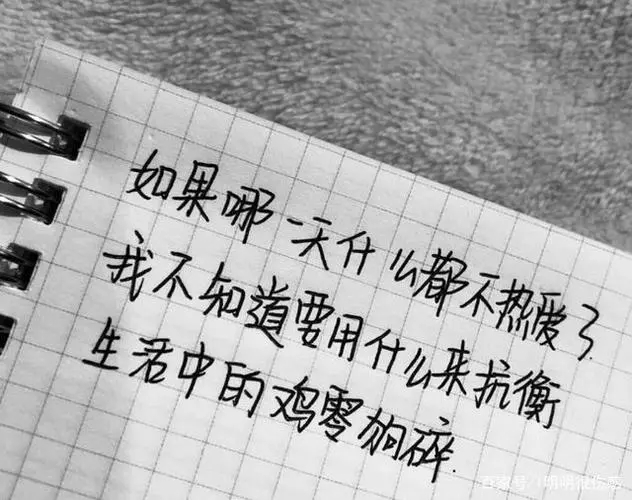 如果哪一天什么都不热爱了
我不知道要用什么来抗衡
生活中的鸡零狗碎.
百家号/明明很伤感